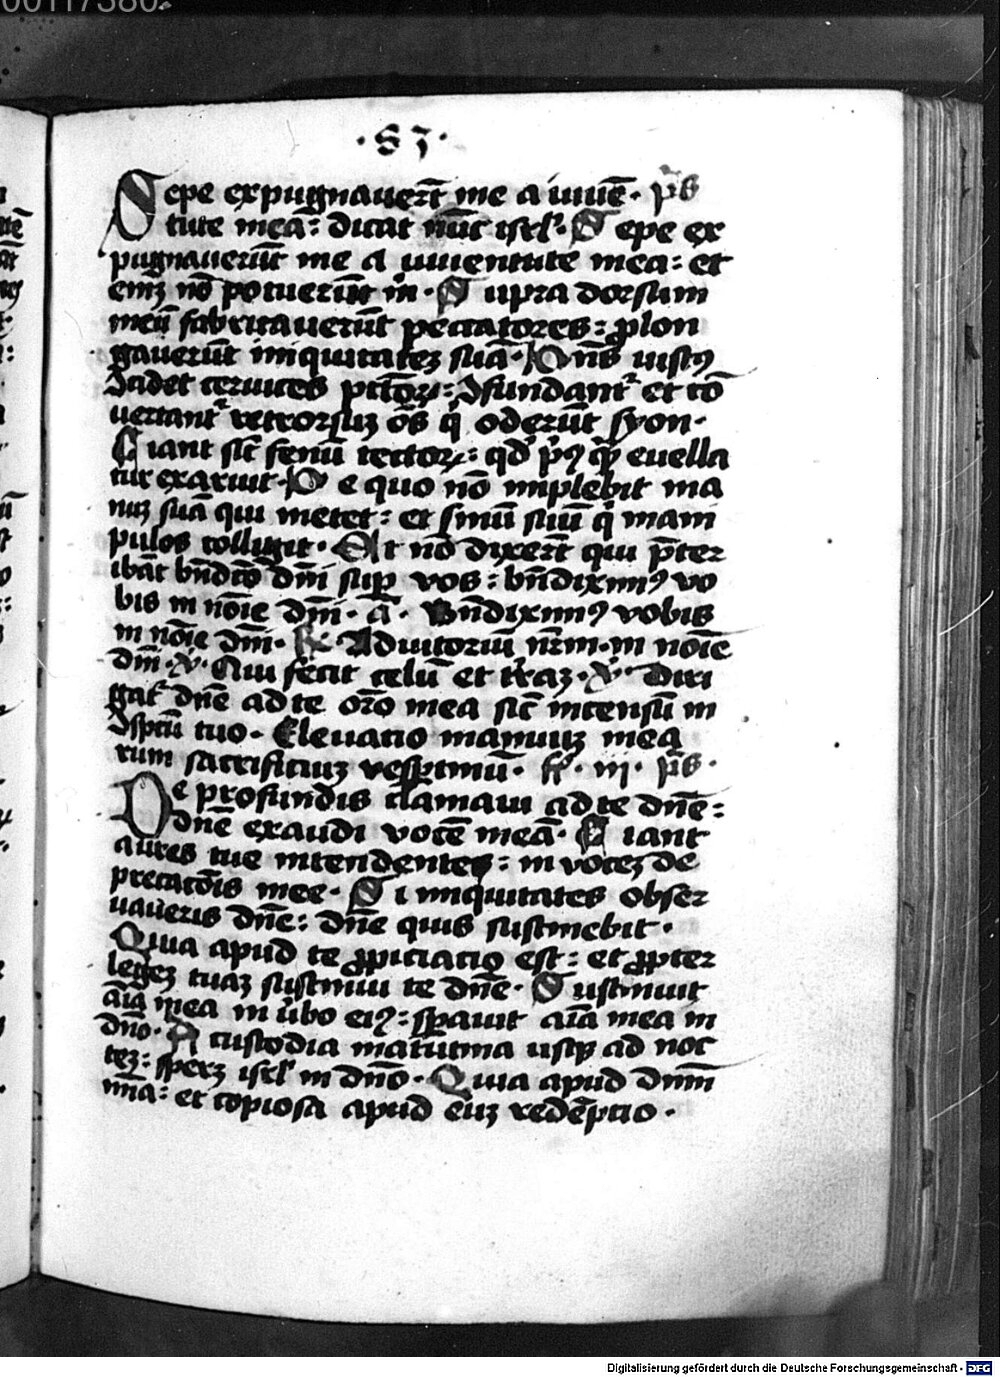 00117380
· 83 ·
Sepe expugnauer̄t me a iuuē· p̄s
tute meā: dicat nūc isrl'· Sepe ex
pugnauerūt me a iuuentute mea: et
em̄ nō potuerūt m̄· Supra dorsum
meū fabricauerūt peccatores: ꝓlon
gauerūt iniquitatez suā· Dn̄s iustꝰ
ↄcidet ceruices pctōrꝝ: ↄfundant᷑ et cō
uertant᷑ retrorsuz oēs q̇ oderūt syon·
Fiant sic̄ fenū tectorꝝ: qd̄ pͥꝰ qꝫ euella
tur exaruit· De quo nō implebit ma
nuz suā qui metet: et sinū suū q̇ mani
pulos colligit· Et nō dixer̄t qui p̄ter
ibāt bn̄dcō dn̄i suꝑ vos: bn̄diximꝰ vo
bis in noīe dn̄i· ā· Bn̄diximꝰ vobis
in noīe dn̄i· ℟· Adiutoriū nr̄m· in noīe
dn̄i· ℣· Qui fecit celū et tr̄az· ℣· Diri
gat᷑ dn̄e ad te or̄o mea sic̄ incensū in
ↄsp̄cū tuo· Eleuatio manuuz mea
rum sacrificiuz vesꝑtinū· fr̄· iii· p̄s·
De profundis clamaui ad te dn̄e:
dn̄e exaudi vocē meā· Fiant
aures tue intendentes: in vocez de
precatōis mee· Si iniquitates obser
uaueris dn̄e: dn̄e quis sustinebit·
Quia apud te ꝓpiciatio est: et ꝓpter
legez tuaz sustinui te dn̄e· Sustinuit
aīa mea in ūbo eiꝰ: sꝑauit aīa mea in
dn̄o· A custodia matutina usqꝫ ad noc
tez: sperz isrl' in dn̄o· Quia apud dnm̄
mīa: et copiosa apud euz redēptio·
Digitalisierung gefördert durch die Deutsche Forschungsgemeinschaft · DFG